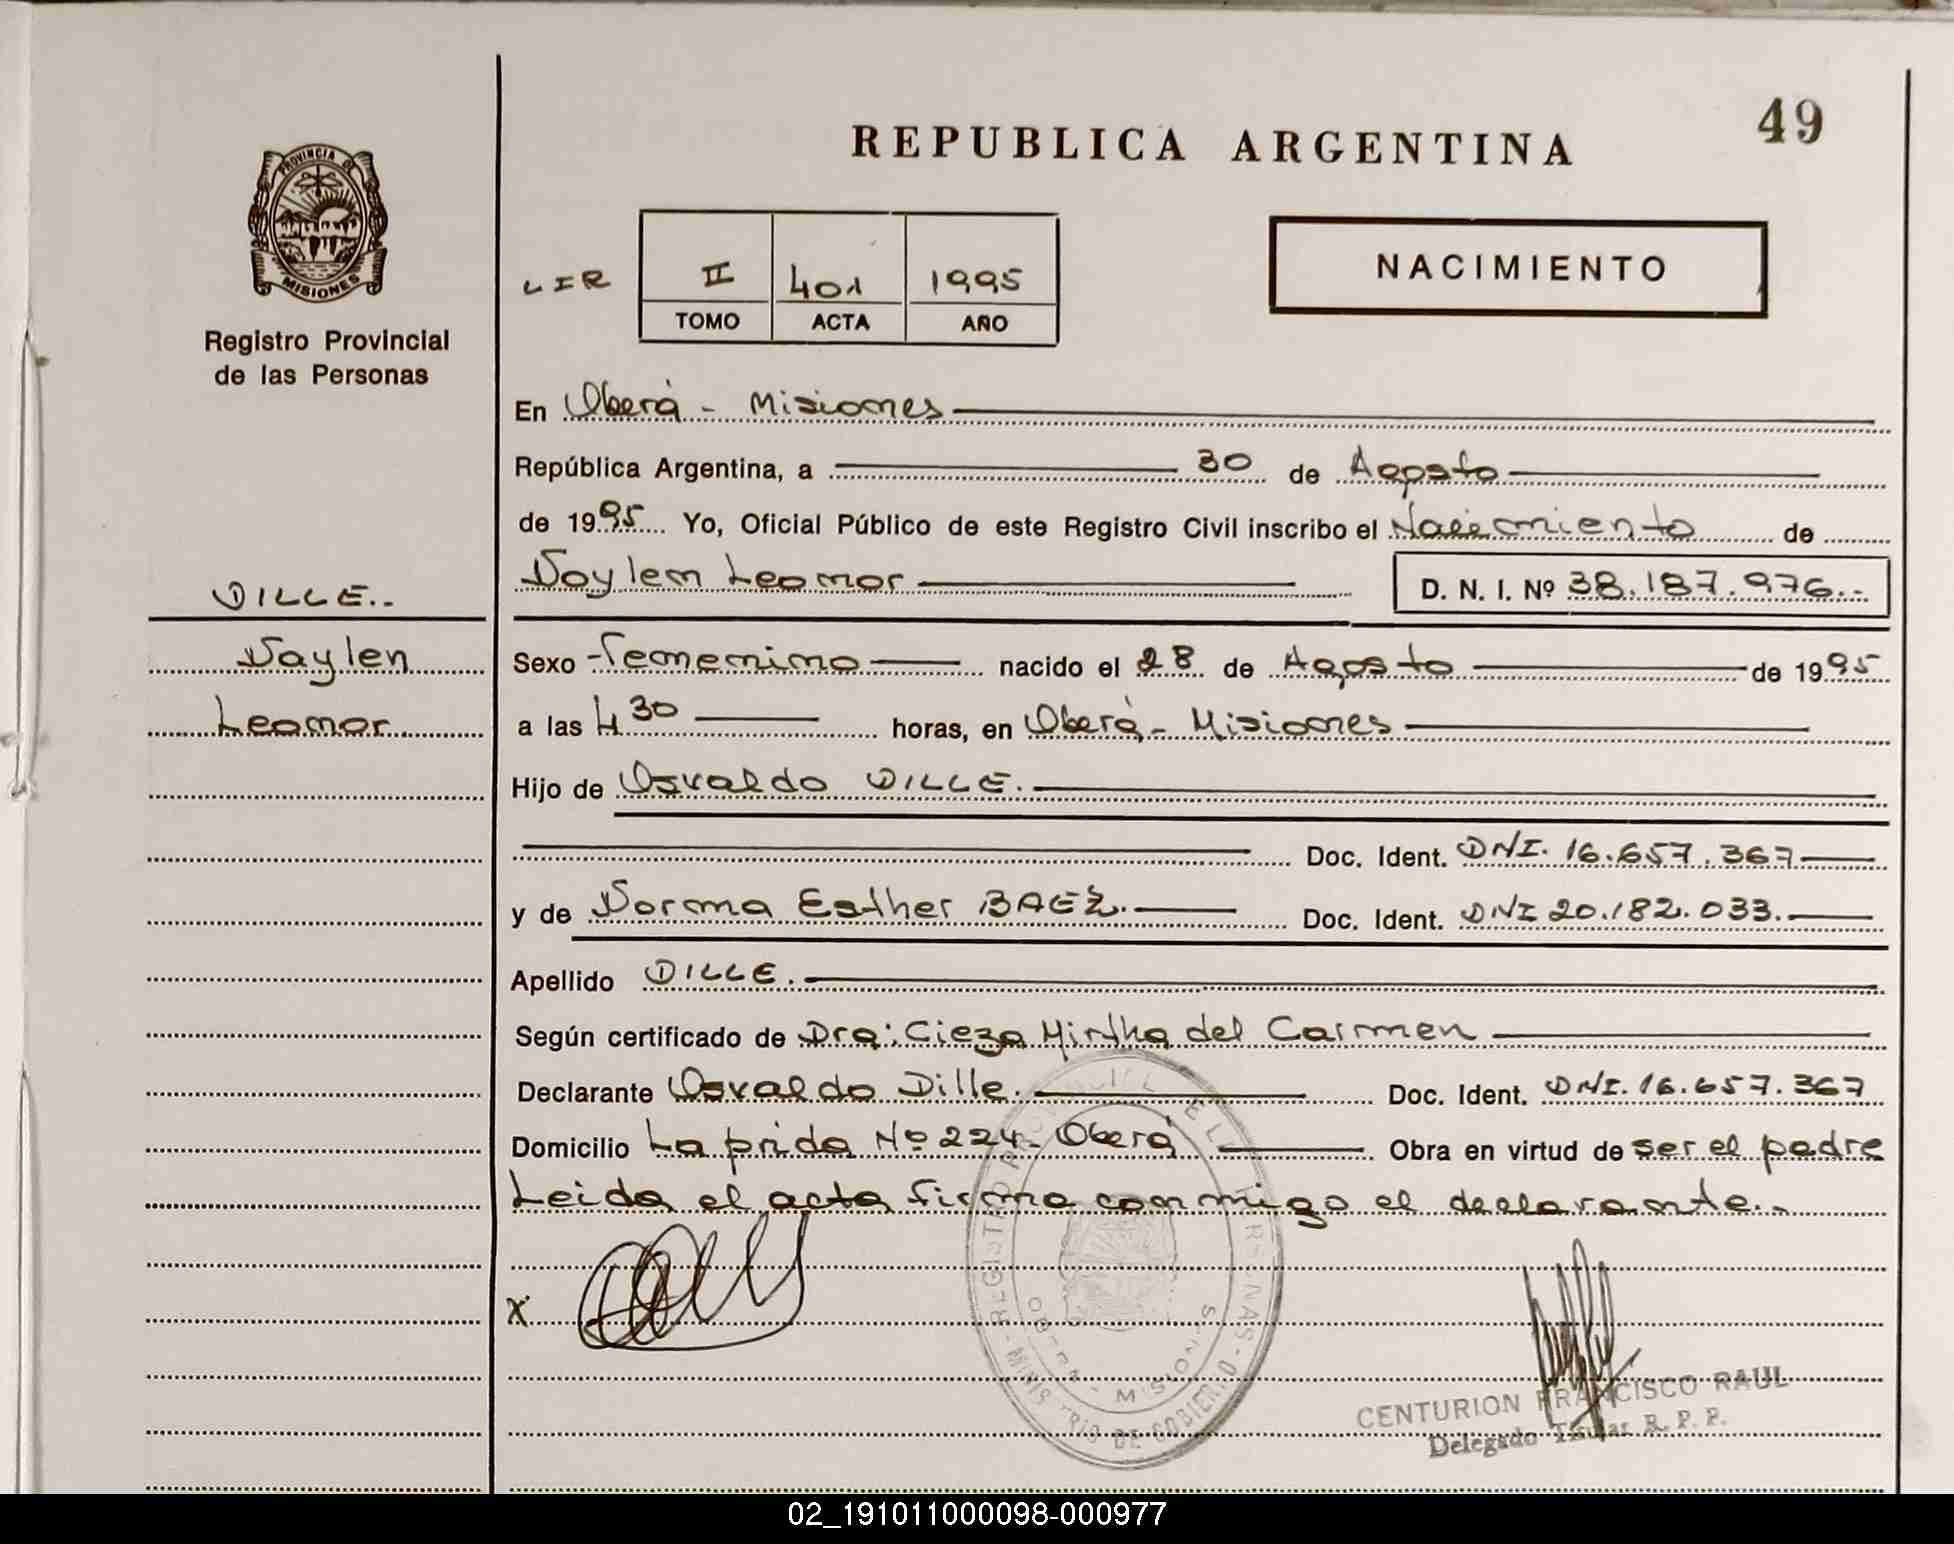 49
REPUBLICA ARGENTINA
PROVINCIA DE
MISIONES
Registro Provincial
de las Personas
NACIMIENTO
LIR II 401 1995
TOMO ACTA AÑO
En Oberá - Misiones
República Argentina, a 30 de Agosto
de 1995 Yo, Oficial Público de este Registro Civil inscribo el Nacimiento de
Naylem Leomor D. N. I. Nº 38.187.976.-
DILLE..
Naylen
Leomor
Sexo Femenino nacido el 28 de Agosto de 1995
a las 4 30 horas, en Oberá - Misiones
Hijo de Osvaldo DILLE.
Doc. Ident. DNI. 16.657.367
y de Norma Esther BAEZ. Doc. Ident. DNI 20.182.033.
Apellido DILLE.
Según certificado de Dra: Cieza Mirtha del Carmen
Declarante Osvaldo Dille. Doc. Ident. DNI. 16.657.367
Domicilio Laprida Nº 224 - Oberá Obra en virtud de ser el padre
Leida el acta firma conmigo el declarante..
X
REGISTRO PROVINCIAL DE LAS PERSONAS - MINISTERIO DE GOBIERNO -
OBERA - MISIONES
CENTURION FRANCISCO RAUL
Delegado Titular R. P. P.
02_191011000098-000977